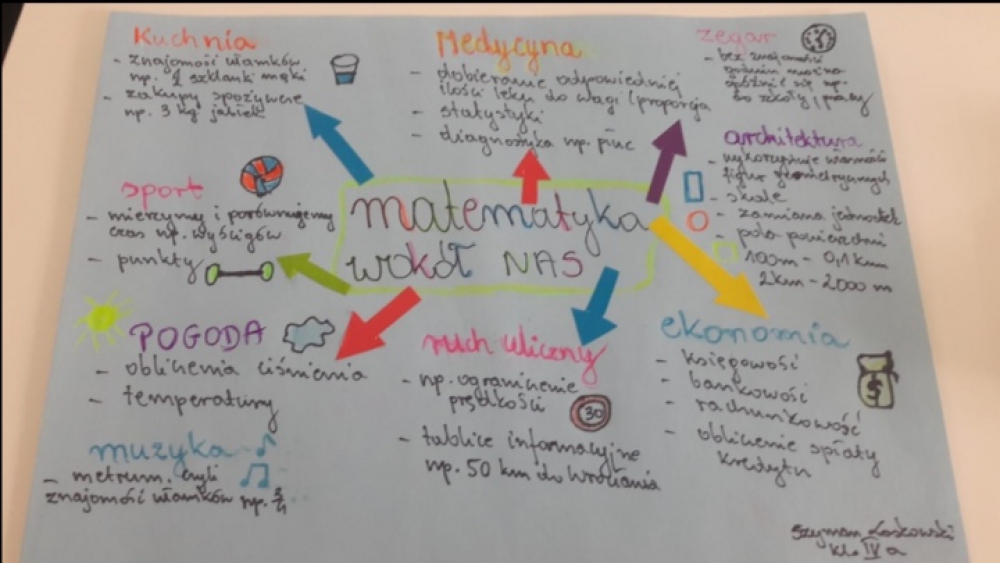 Kuchnia
- znajomość ułamków
np. 1 szklanki mąki
- zakupy spożywcze
np. 3 kg jabłek
Medycyna
- dobieranie odpowiedniej
ilości leku do wagi (proporcja
- statystyki
- diagnostyka np. płuc
zegar
- bez znajomości
godzin można
spóźnić się np.
do szkoły, pracy
architektura
- wykorzystuje własności
figur geometrycznych
- skale
- zamiana jednostek
- pola powierzchni
100m - 0,1 km
2km - 2000 m
sport
- mierzymy i porównujemy
czas np. wyścigów
- punkty
matematyka
wokół NAS
POGODA
- obliczenia ciśnienia
- temperatury
muzyka
- metrum, czyli
znajomość ułamków np. 3/4
ruch uliczny
- np. ograniczenie
prędkości
30
- tablice informacyjne
np. 50 km do Wrocławia
ekonomia
- księgowość
- bankowość
- rachunkowość
- obliczenie spłaty
kredytu
$
Szymon Laskowski
kl. IV a